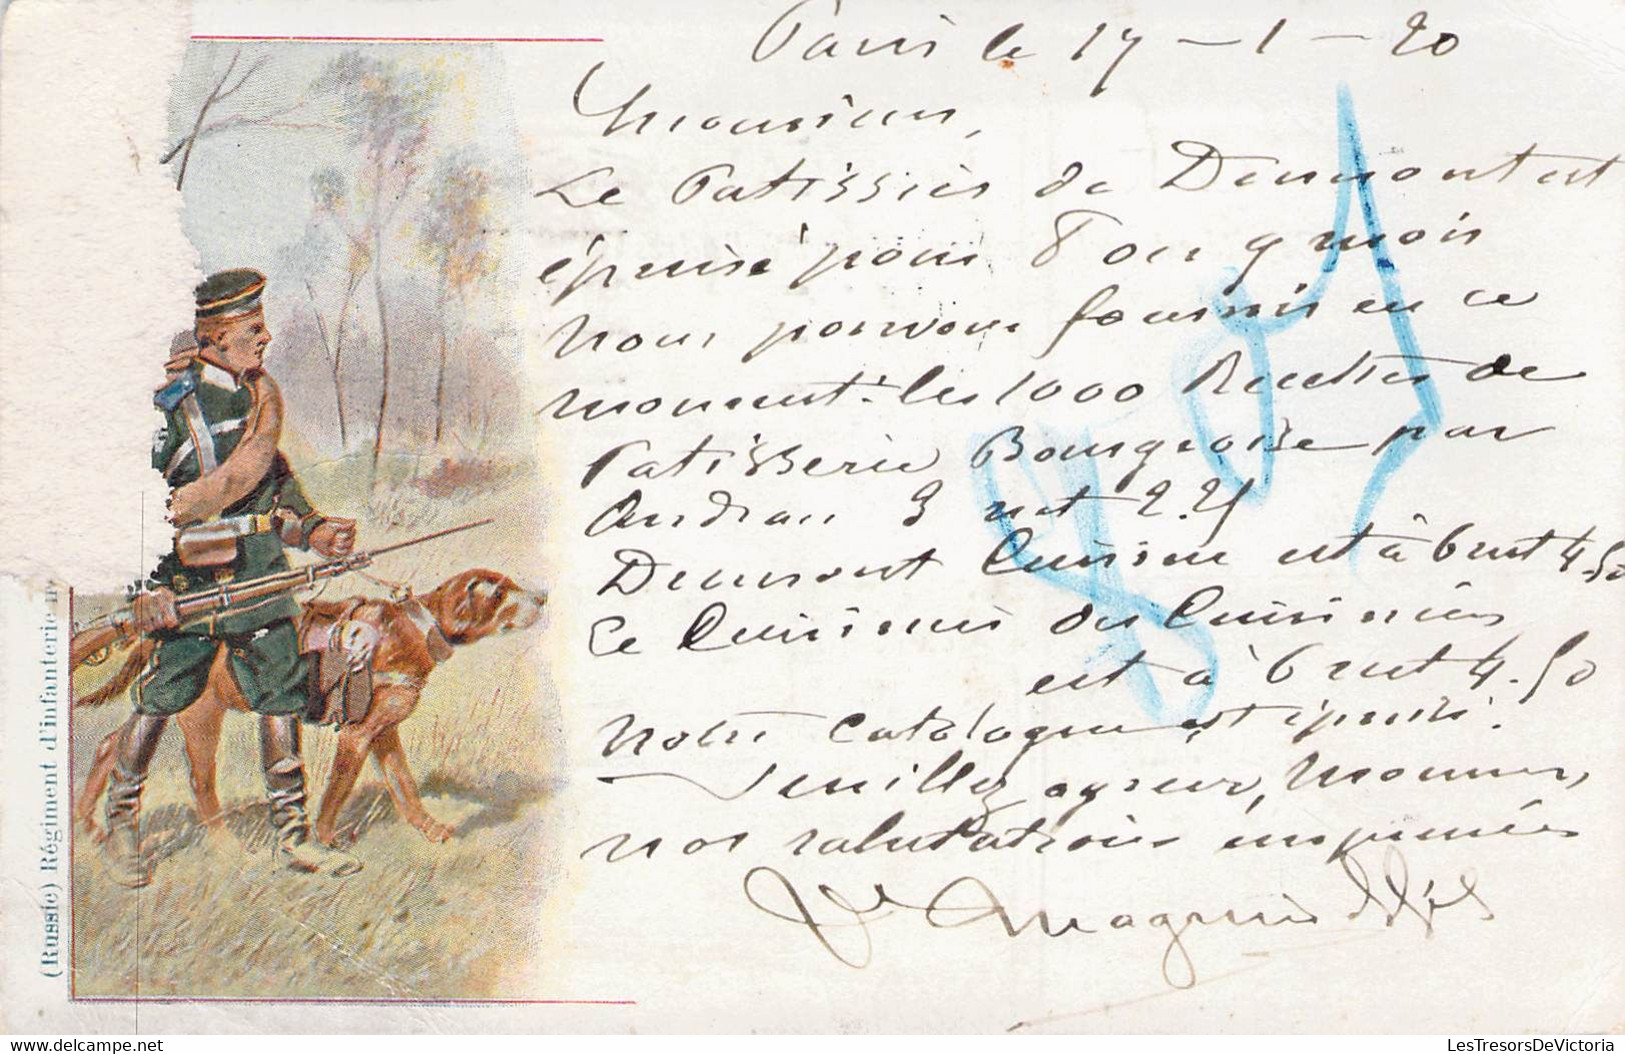 Paris le 17 - 1 - 20
Monsieur,
Le Patissier de Dumont est
épuisé pour 8 ou 9 mois
Nous pouvons fournir en ce
moment : les 1000 Recettes de
Patisserie Bourgeoise par
3 net 2.25
Dumont Cuisine est à 6 net 4.50
Le Cuisinier des Cuisiniers
est à 6 net 4.50
Notre Catalogue est épuisé.
Veuillez agréer, Monsieur,
nos salutations empressées
Magnin
(Russie) Régiment d'infanterie
delcampe.net
LesTresorsDeVictoria